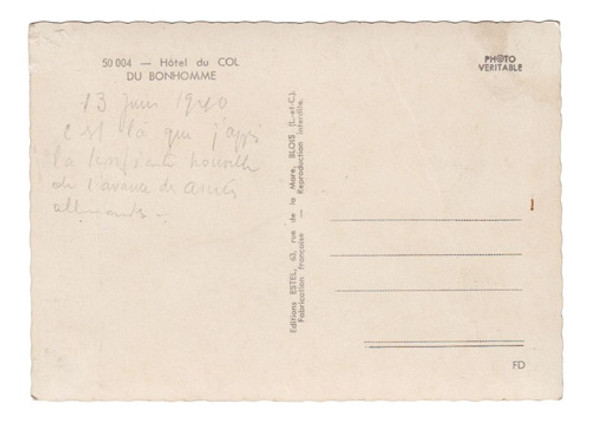 50 004 — Hôtel du COL
DU BONHOMME
PHOTO
VERITABLE
13 Juin 1940
c'est là que j'appris
la terrifiante nouvelle
de l'avance des armées
allemandes —
Editions ESTEL, 63, rue de la Mare, BLOIS (L.-et-C.).
Fabrication française — Reproduction interdite.
FD